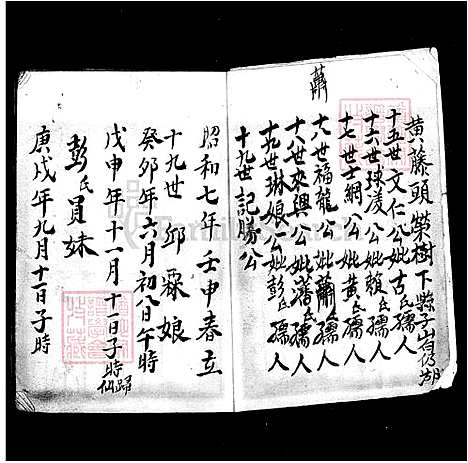 蕭
黄藤頭榮樹下縣子山白仍湖
十五世文仁公妣古氏孺人
十六世球淩公妣賴氏孺人
十七世士綱公妣黄氏孺人
十八世福龍公妣蕭氏孺人
十八世來興公妣潘氏孺人
十九世琳娘公妣彭氏孺人
十九世記勝公
昭和七年壬申春立
十九世邱霖娘
癸卯年六月初八日午時
戊申年十一月十一日子時歸仙
彭氏員妹
庚戌年九月十一日子時